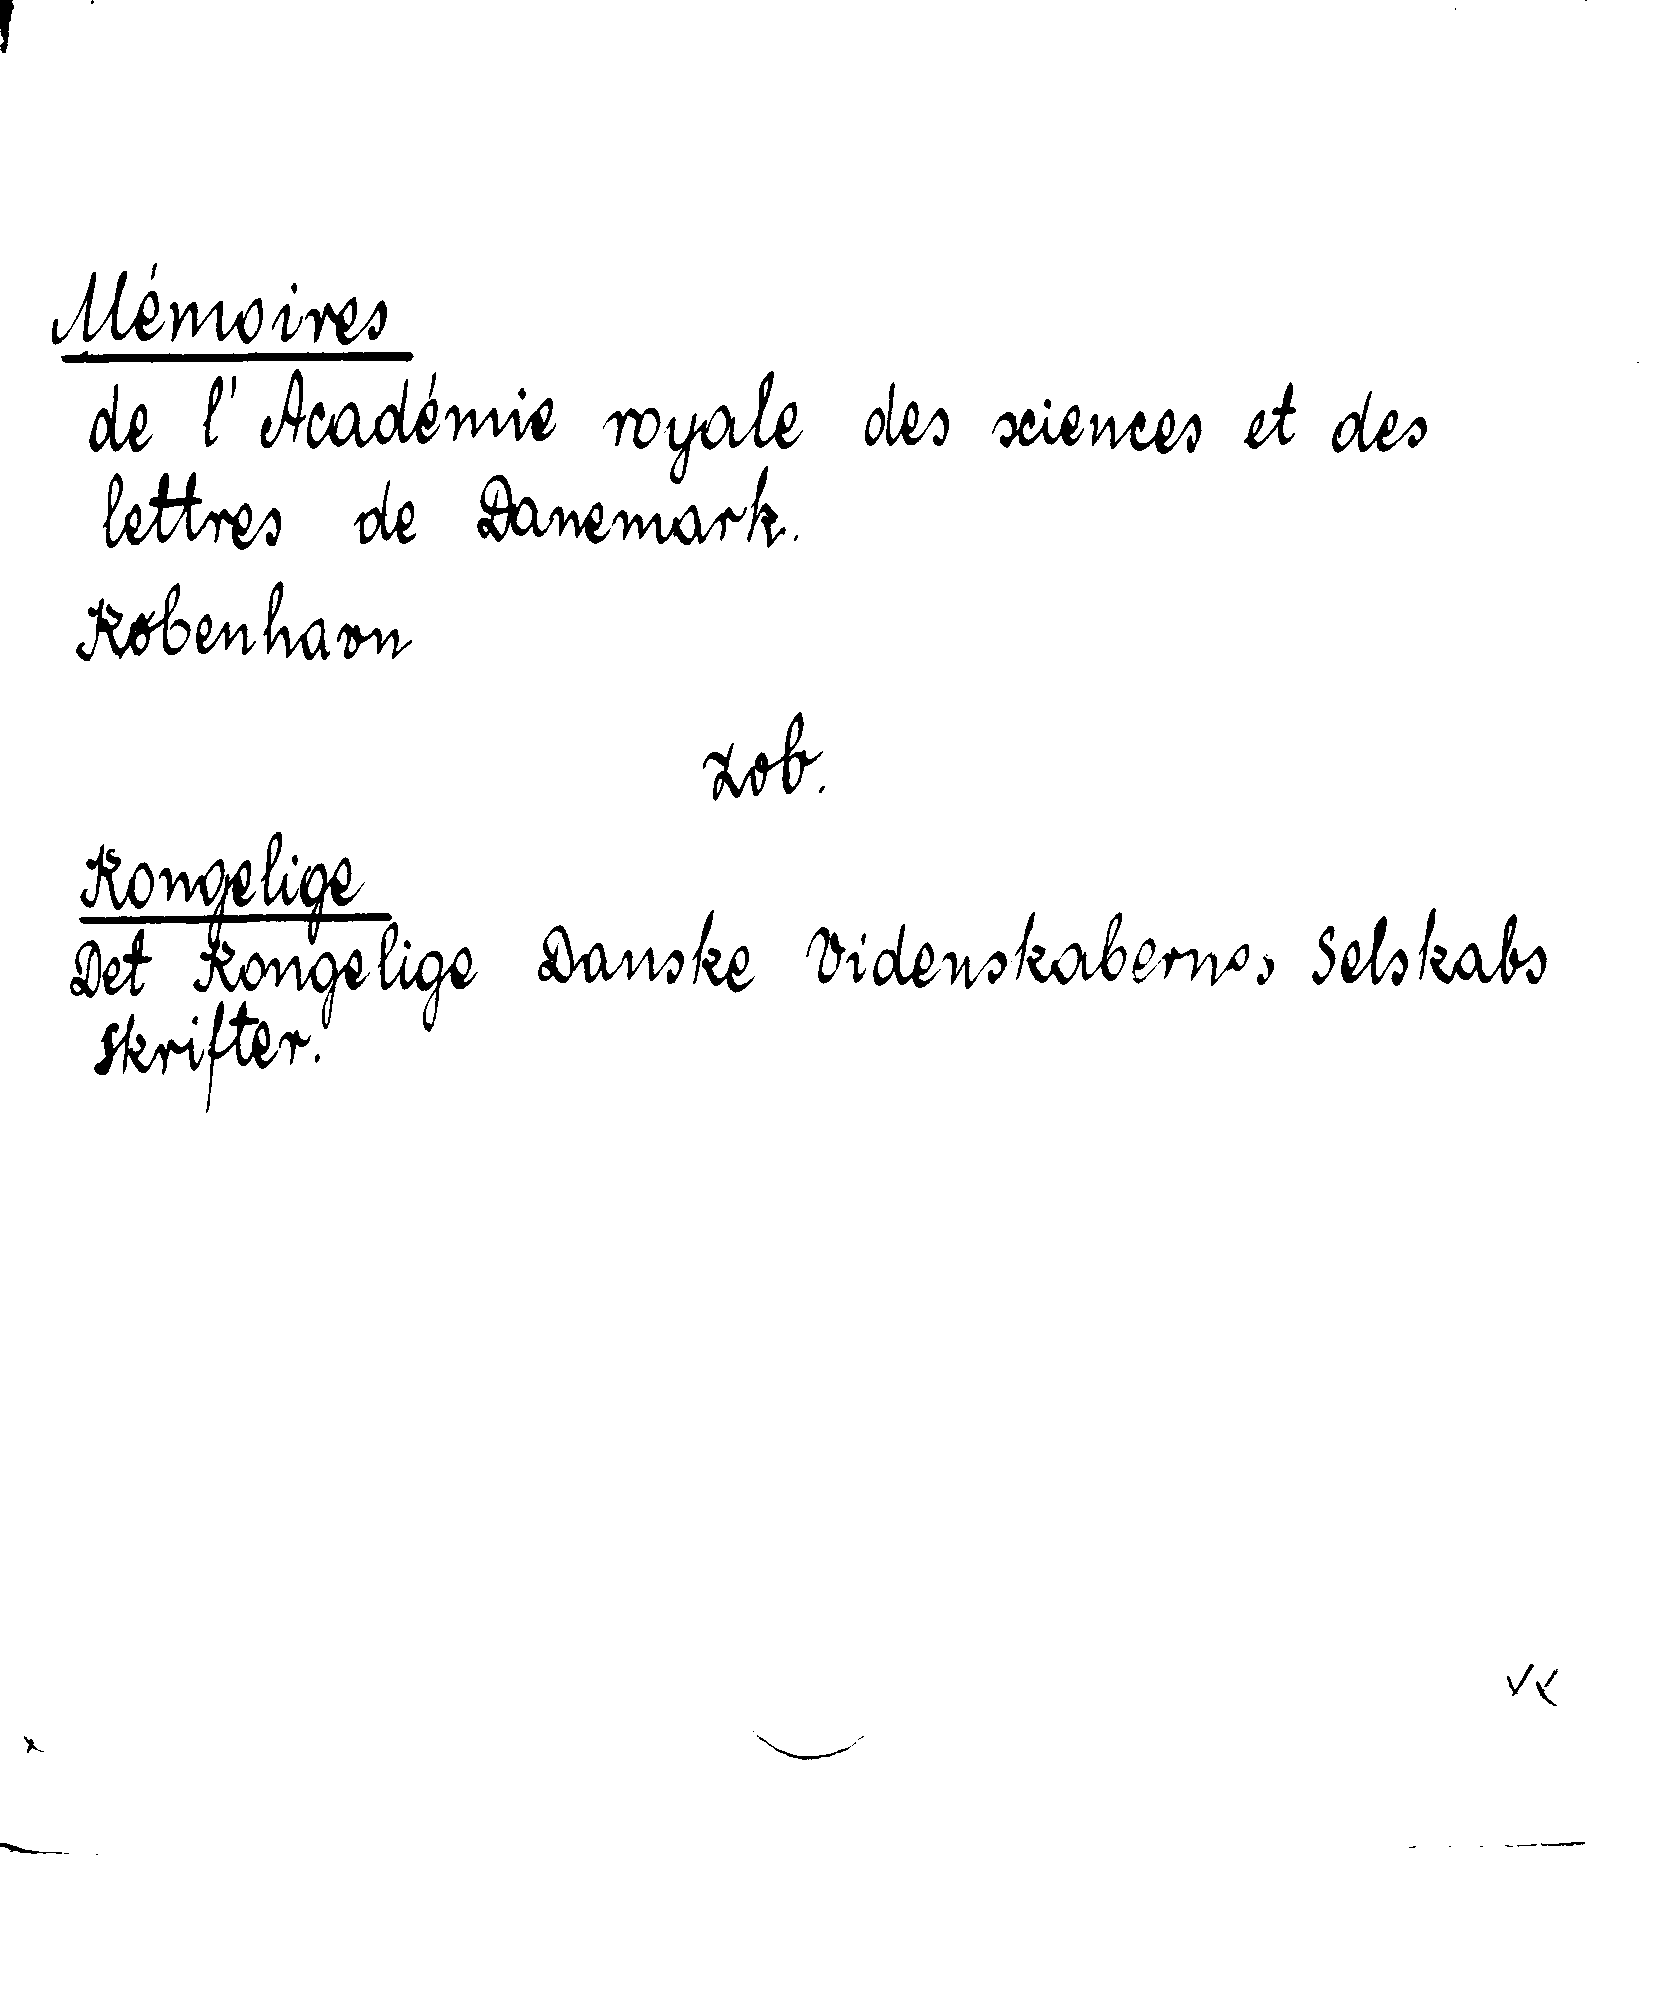 Mémoires
de l'Académie royale des sciences et des
lettres de Danemark.
København
zob.
Kongelige
Det Kongelige Danske Videnskabernes Selskabs
Skrifter.